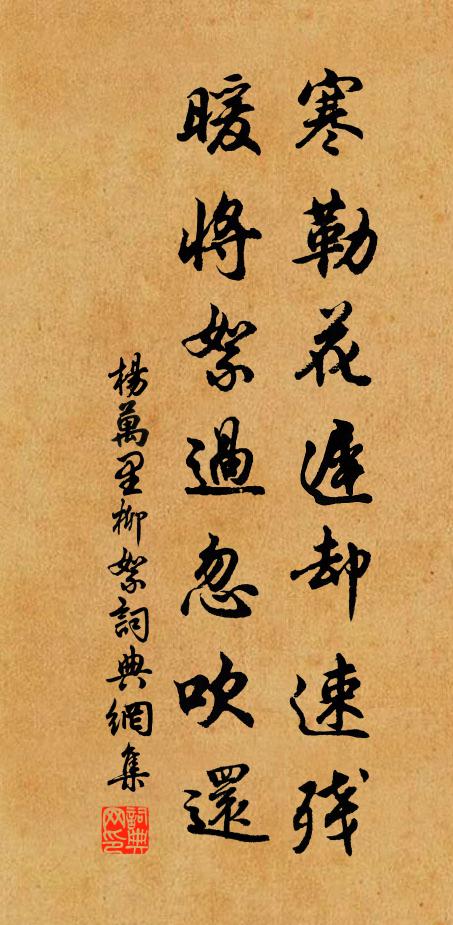 寒勒花遲却速残
暖將絮過忽吹還
楊萬里柳絮詞典網集
詞典网印